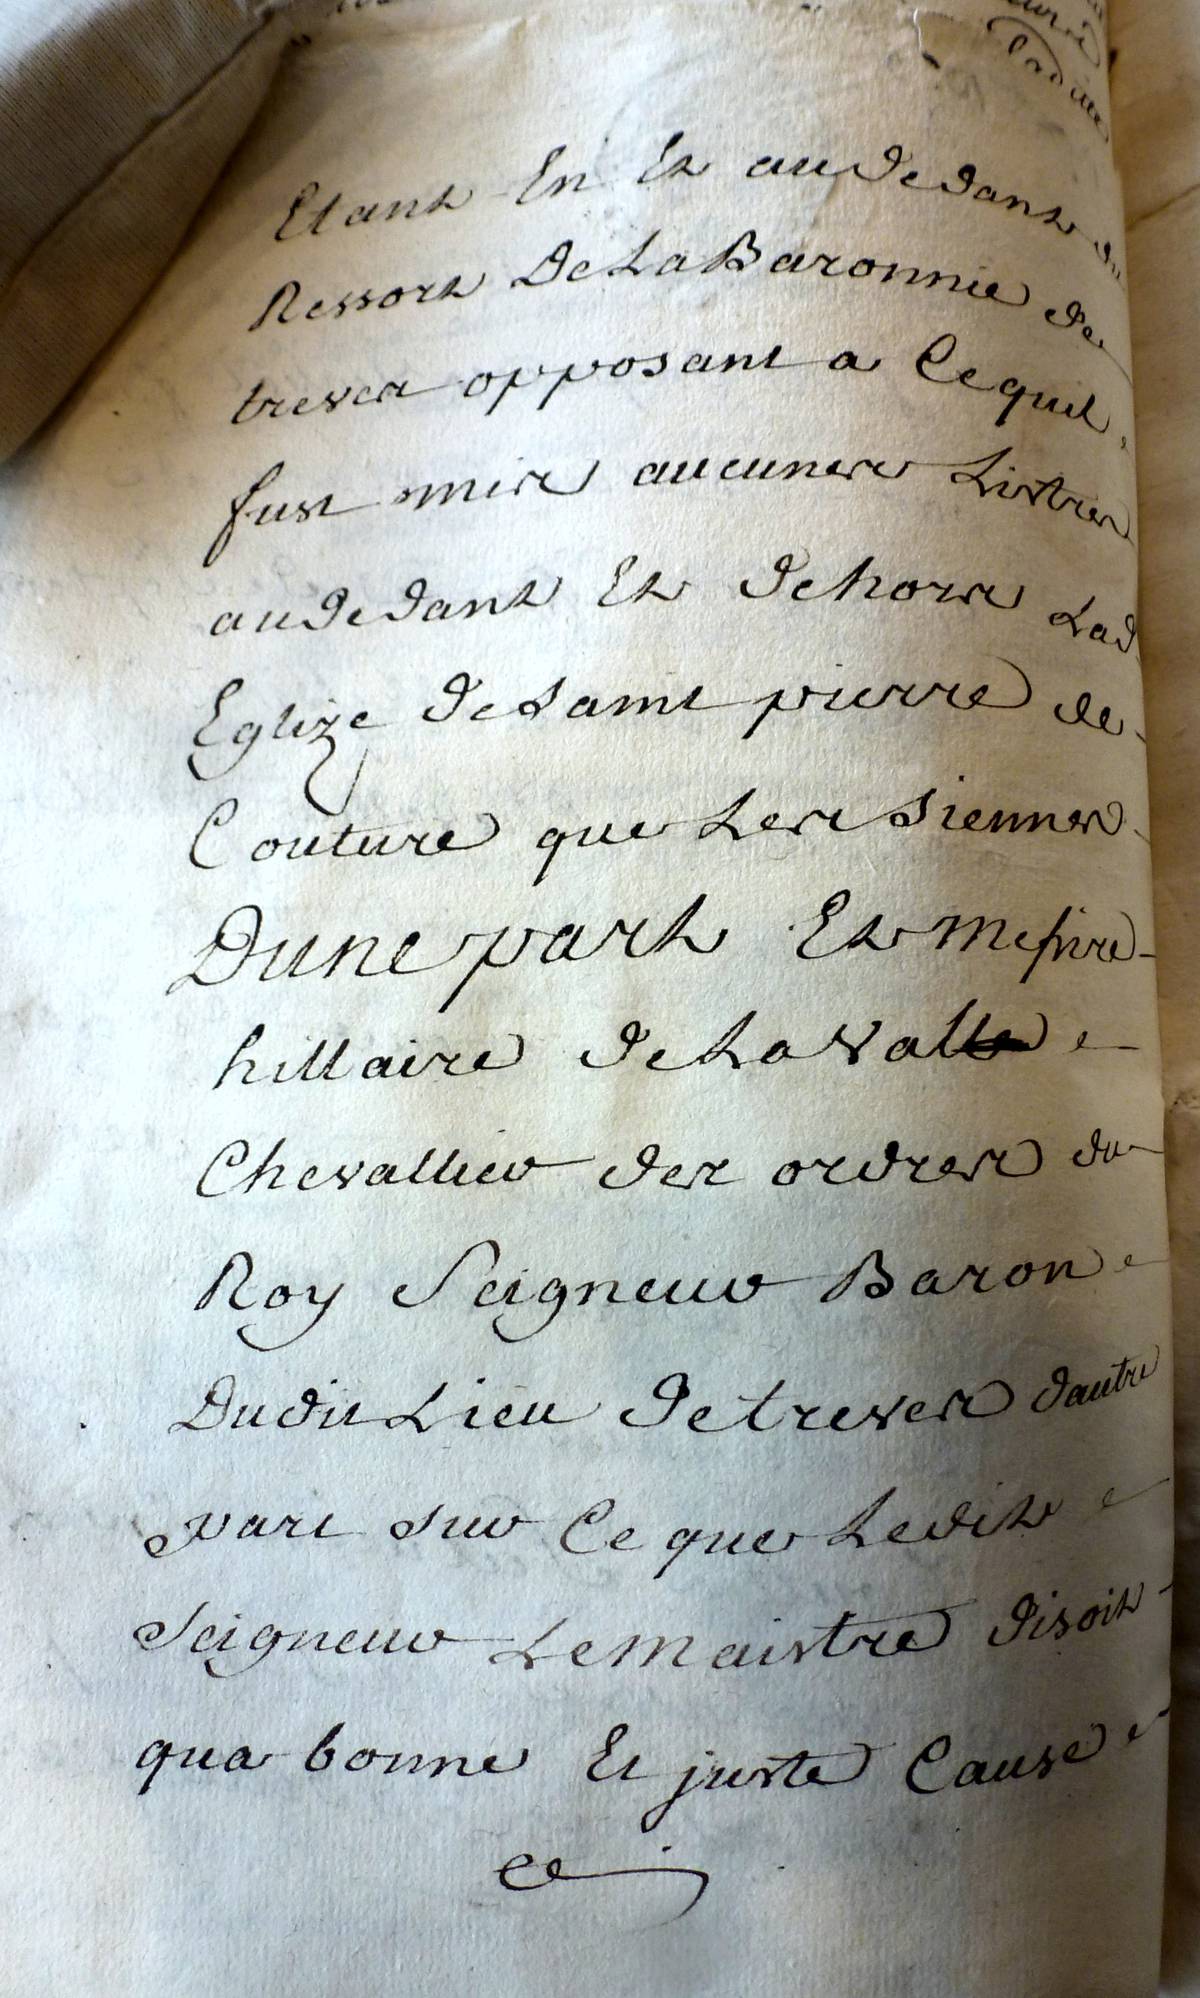 ladite
Etant En Et audedant du
Ressort De La Baronnie de
treves opposant a Cequil
fust mis aucunes Listres
audedant Et dehors Lad
Eglize de Saint pierre de
Couture que Les Siennes
Dune part Et Messire
hillaire de Laval
Chevallier des ordres du
Roy Seigneur Baron
Dudit Lieu de treves dautre
part sur Ce que Ledit
Seigneur Lemaistre disoit
qua bonne Et juste Cause